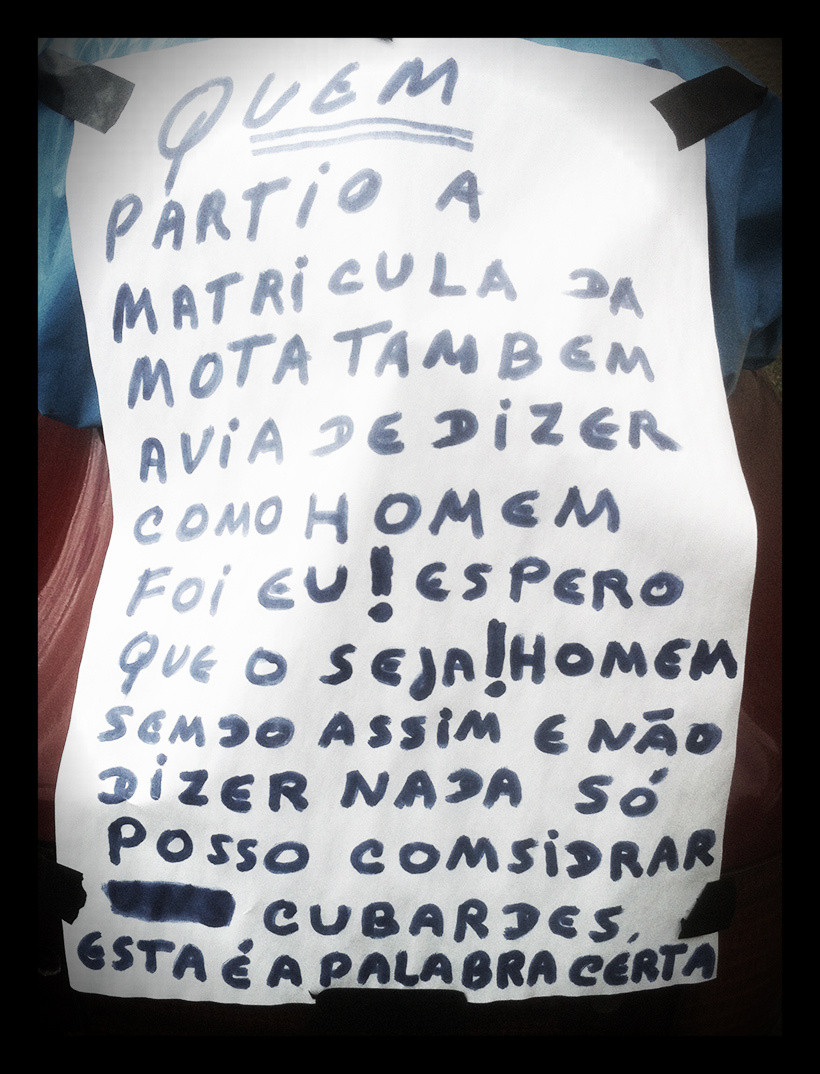 QUEM
PARTIO A
MATRiCULA DA
MOTA TAMBEM
AViA DE DiZER
COMO HOMEM
FOi EU! ESPERO
QUE O SEJA! HOMEM
SEMDO ASSiM E NÃO
DiZER NADA SÓ
POSSO COMSiDRAR
CUBARDES,
ESTA É A PALABRA CERTA